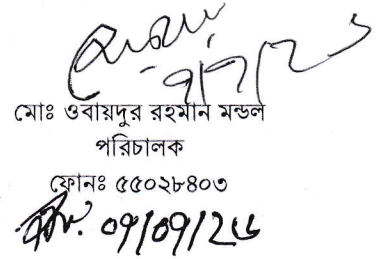 ৭/৭/২৬
মোঃ ওবায়দুর রহমান মন্ডল
পরিচালক
ফোনঃ ৫৫০২৮৪০৩
০৭/০৭/২৬